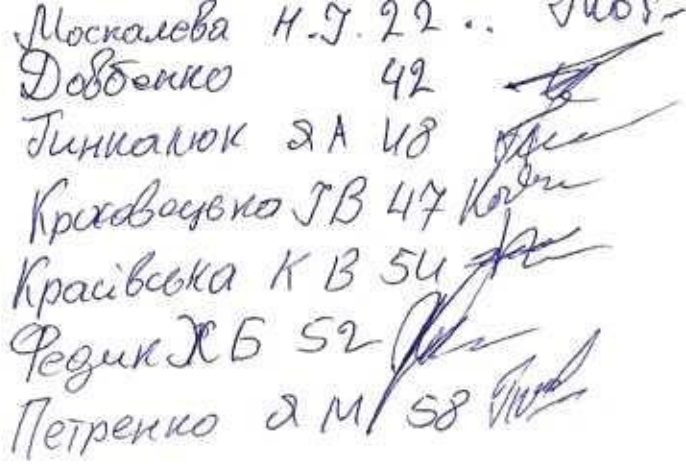 Москалева Н.Г. 22 ..
Довбенко 42
Гинкалюк Я А 48
Криховецька ГВ 47
Красівська К В 54
Федик Ж Б 52
Петренко Я М 58